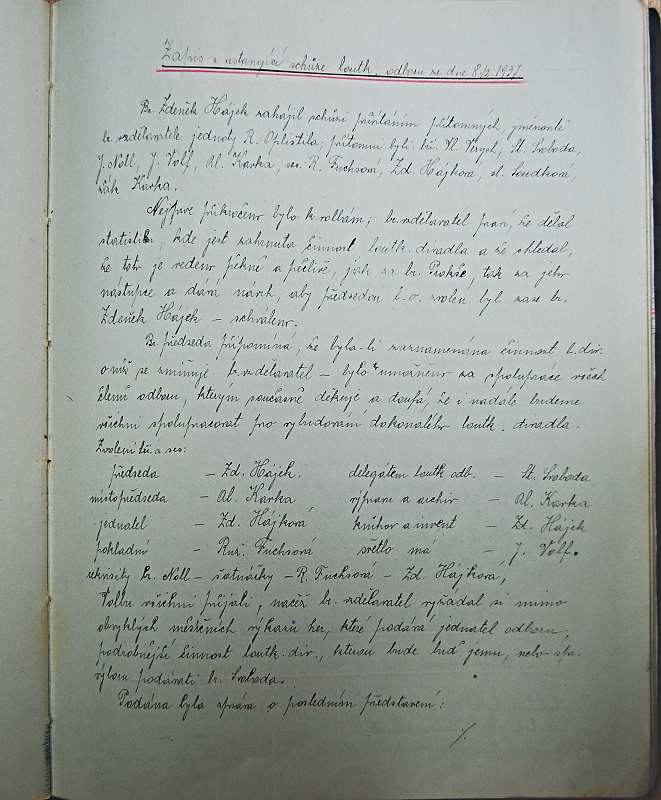 Zápis z ustanovující schůze loutk. odboru ze dne 8./2. 1937
Br. Zdeněk Hájek zahájil schůzi přivítáním přítomných, jmenovitě
br. vzdělavatele jednoty R. Oplištila; přítomni byli: bří. Vl. St. Svoboda,
J. Noll, J. Volf, Al. Karka, ses. R. Fuchsová, Zd. Hájková, sl. Soudková,
žák Karka.
Nejprve přikročeno bylo k volbám; br. vzdělavatel praví, že dělal
statistiku, kde jest zahrnuta činnost loutk. divadla a že shledal,
že toto je vedeno pěkně a pečlivě, jak za br. Prokše, tak za jeho
nástupce a dává návrh, aby předsedou l. o. zvolen byl zase br.
Zdeněk Hájek – schváleno.
Br. předseda připomíná, že byla-li zaznamenána činnost l. div.
o níž se zmiňuje br. vzdělavatel – bylo umožněno za spolupráce všech
členů odboru, kterým současně děkuje a doufá, že i nadále budeme
všichni spolupracovat pro vybudování dokonalého loutk. divadla.
Zvoleni bří. a ses:
předseda – Zd. Hájek. delegátem loutk. odb. – St. Svoboda
místopředseda – Al. Karka výprava a archiv – Al. Karka
jednatel – Zd. Hájková knihov. a invent – Zd. Hájek
pokladní – Růž. Fuchsová světlo má – J. Volf.
rekvisity br. Noll – šatnářky – R. Fuchsová – Zd. Hájková,
Volbu všichni přijali, načež br. vzdělavatel vyžádal si mimo
obvyklých měsíčních výkazů her, které podává jednatel odboru,
podrobnější činnost loutk. div., kterou bude buď jemu, nebo
výboru podávati br. Svoboda.
Podána byla zpráva o posledním představení:
./.